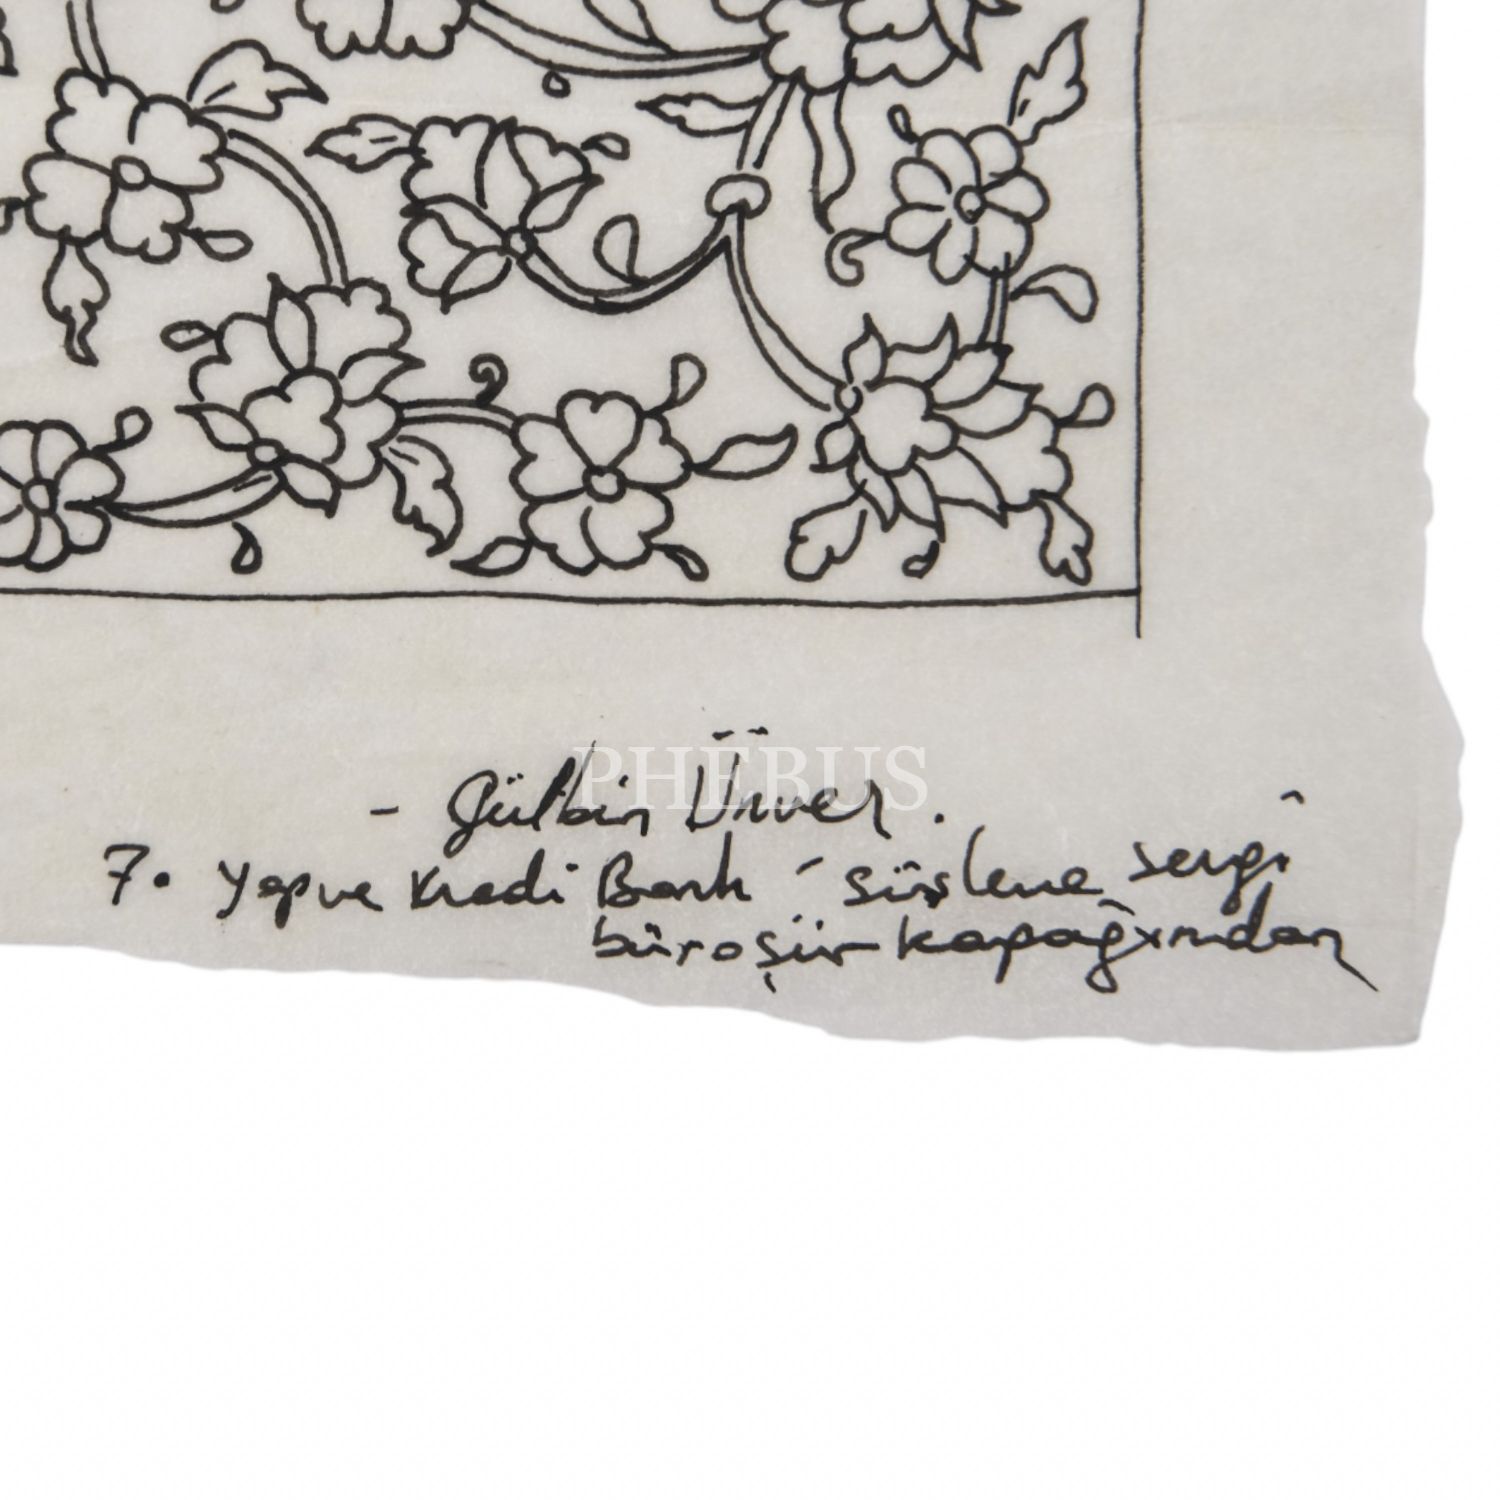 PHEBUS
- Gülbin Ünver.
7. Yapve Kredi Bank - süsleme sergi
büroşür kapağından